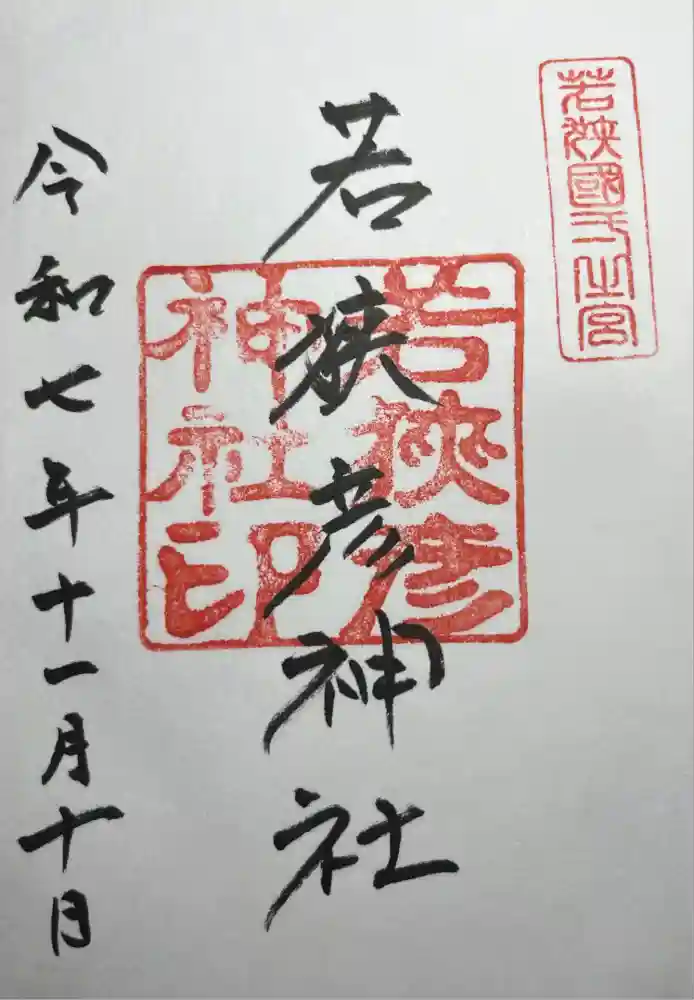 若狹國一之宮
若狭彦神社
若狹彦
神社印
令和七年十一月十日